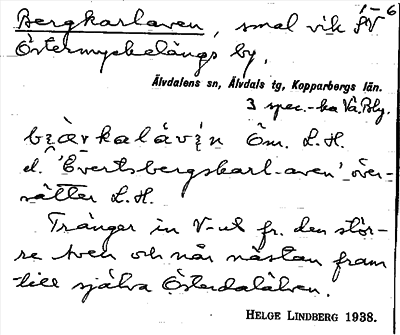 Bergkarlaven, smal vik i V 6
Östermyckelängs by,
Älvdalens sn, Älvdals tg, Kopparbergs län.
3 spec.-ka Vå. Bly.
Öm. L.H.
el. 'Evertsbergskarl-aven' över-
sätter L.H.
Tränger in V-ut fr. den stör-
re aven och når nästan fram
till själva Österdalälven.
HELGE LINDBERG 1938.